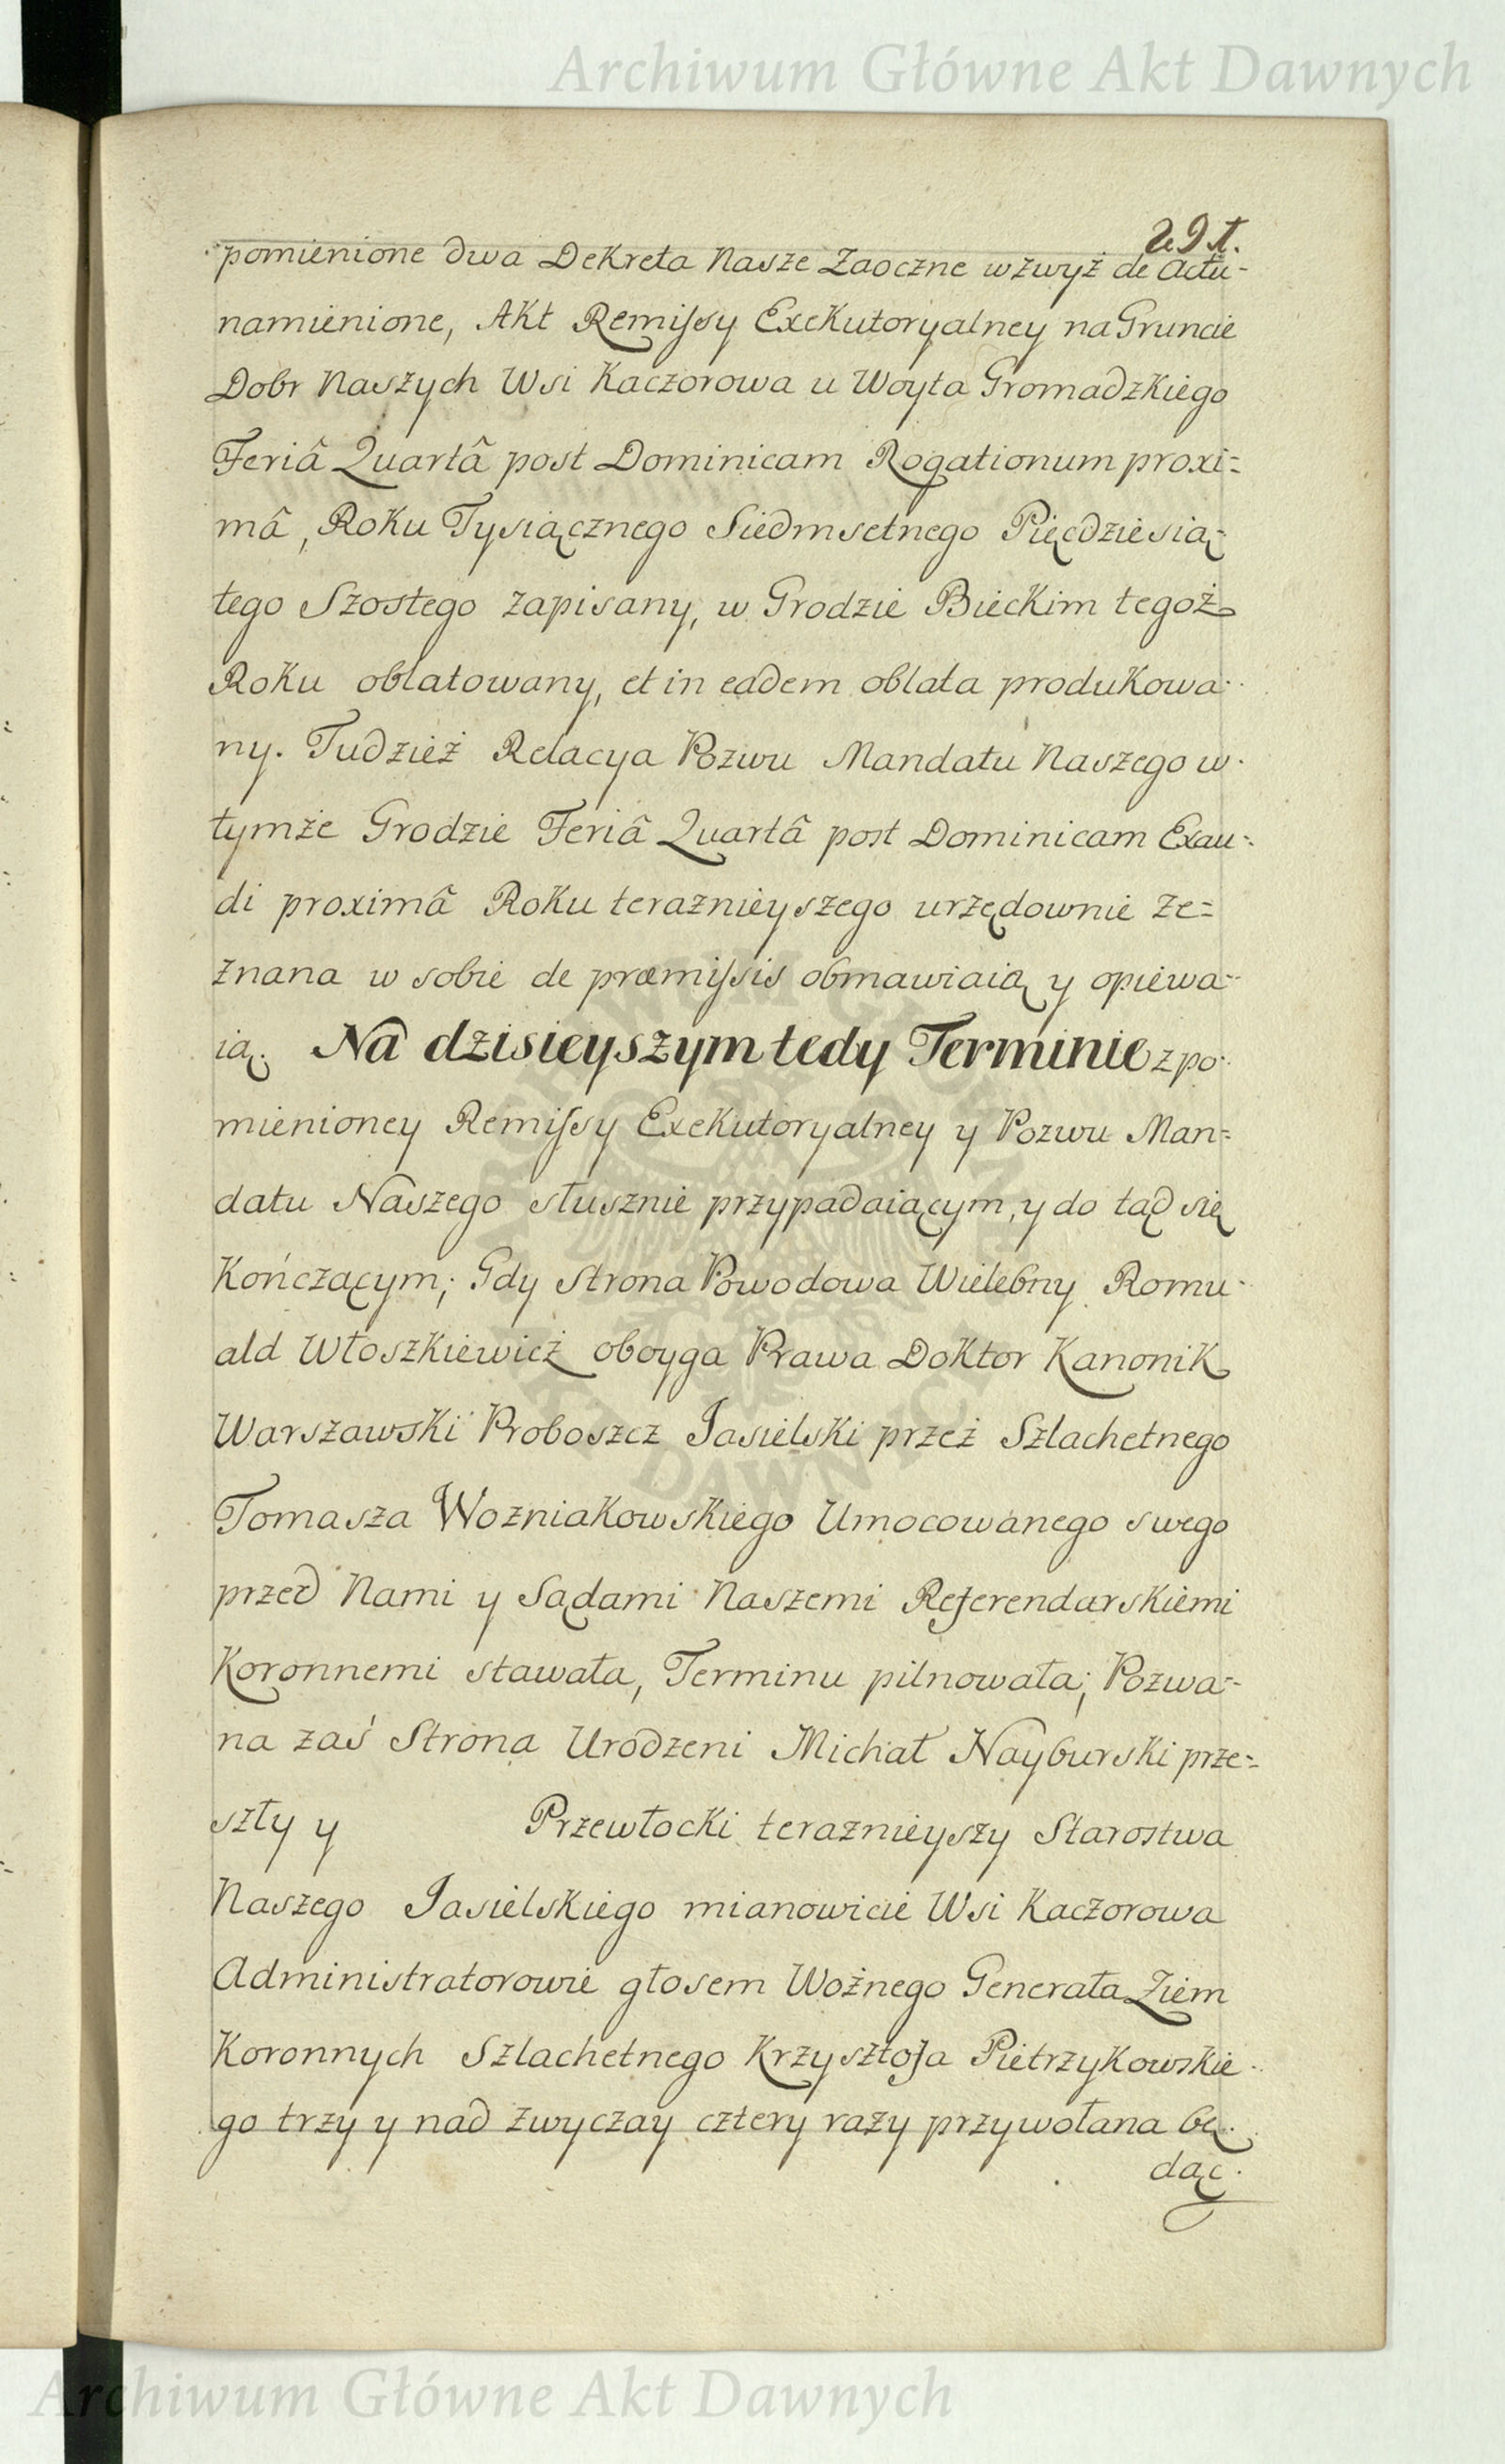 Archiwum Główne Akt Dawnych
291.
pomienione dwa Dekreta Nasze Zaoczne wzwyż de Actu-
namienione, Akt Remissy Exekutoryalney na Gruncie
Dobr Naszych Wsi Kaczorowa u Woyta Gromadzkiego
Feriâ Quartâ post Dominicam Rogationum proxi=
mâ, Roku Tysiącznego Siedmsetnego Pięcdziesią=
tego Szostego zapisany, w Grodzie Bieckim tegoż
Roku oblatowany, et in eadem oblata produkowa-
ny. Tudzież Relacya Pozwu Mandatu Naszego w
tymże Grodzie Feriâ Quartâ post Dominicam Exau=
di proximâ Roku terazniéyszego urzędownie ze=
znana w sobie de præmissis obmawiaią y opiewa=
ią. Na dzisieyszym tedy Terminie z po-
mienioney Remissy Exekutoryalney y Pozwu Man=
datu Naszego słusznie przypadaiącym, y do tąd się
Kończącym; Gdy Strona Powodowa Wielebny Romu-
ald Włoszkiewicz oboyga Prawa Doktor Kanonik
Warszawski Proboszcz Jasielski przez Szlachetnego
Tomasza Wozniakowskiego Umocowanego swego
przed Nami y Sądami Naszemi Referendarskiemi
Koronnemi stawała, Terminu pilnowała; Pozwa=
na zaś Strona Urodzeni Michał Nayburski prze=
szły y Przewłocki terazniéyszy Starostwa
Naszego Jasielskiego mianowicie Wsi Kaczorowa
Administratorowie głosem Wożnego Generała Ziem
Koronnych Szlachetnego Krzysztofa Pietrzykowskie-
go trzy y nad zwyczay cztery razy przywołana bę-
dąc.
Archiwum Główne Akt Dawnych